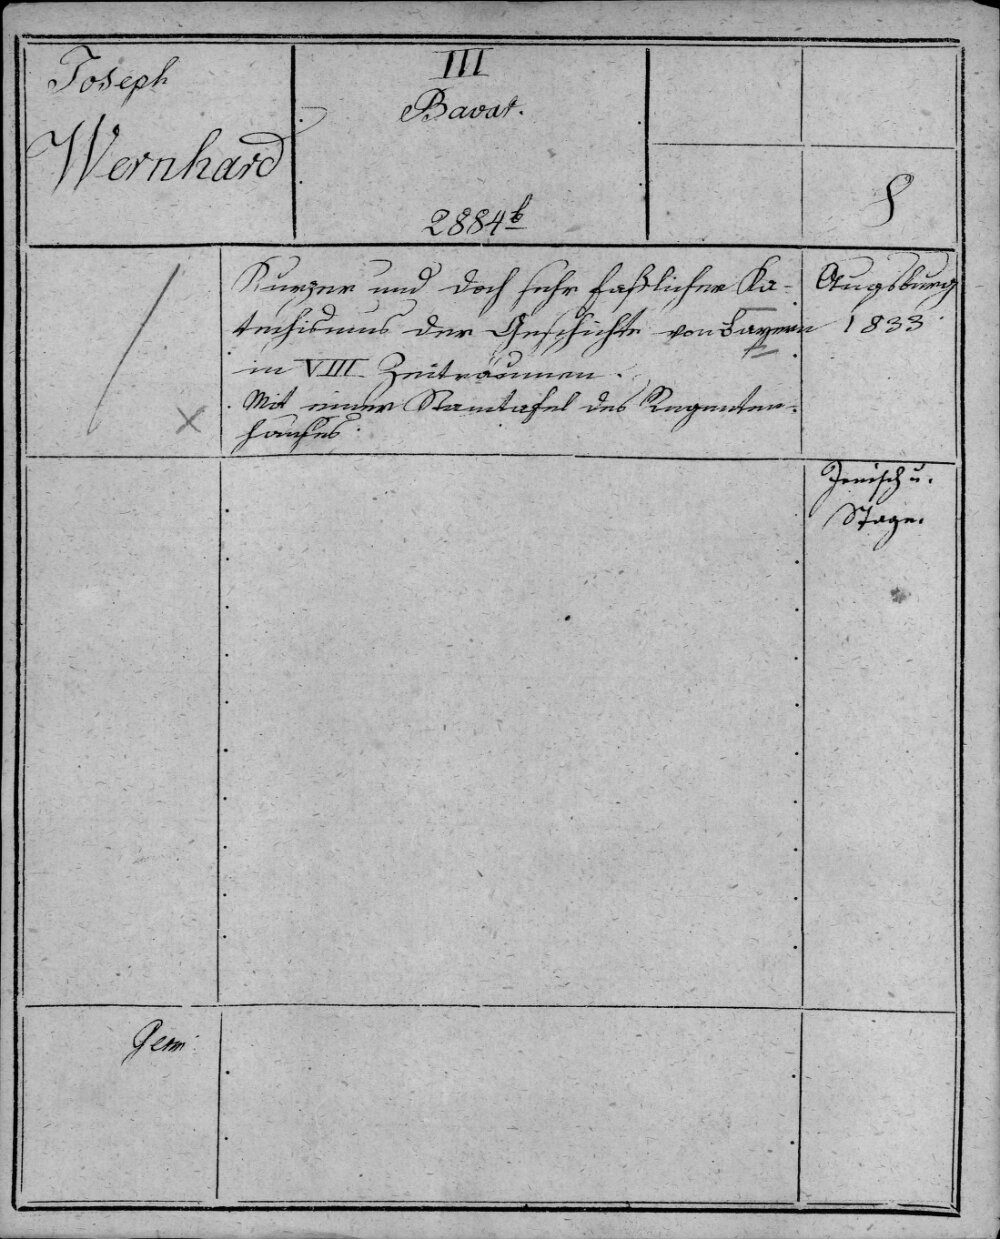 Joseph
Wernhard
III
Bavar.
2884b
8
Kurzer und doch sehr faßlicher Ka-
techismus der Geschichte von Bayern
in VIII Zeiträumen.
Mit einer Stamtafel des Regenten-
hauses.
Augsburg
1833
Jenisch u.
Stage.
Germ.